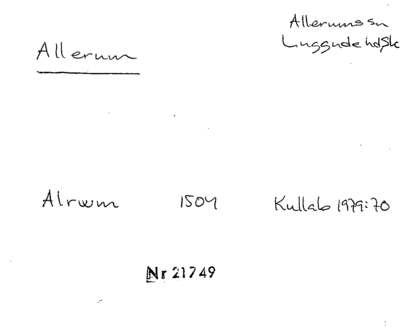 Allerum
Allerums sn
Luggude hd, Sk
Alrwm 1504 Kullab 1979:70
Nr 21749